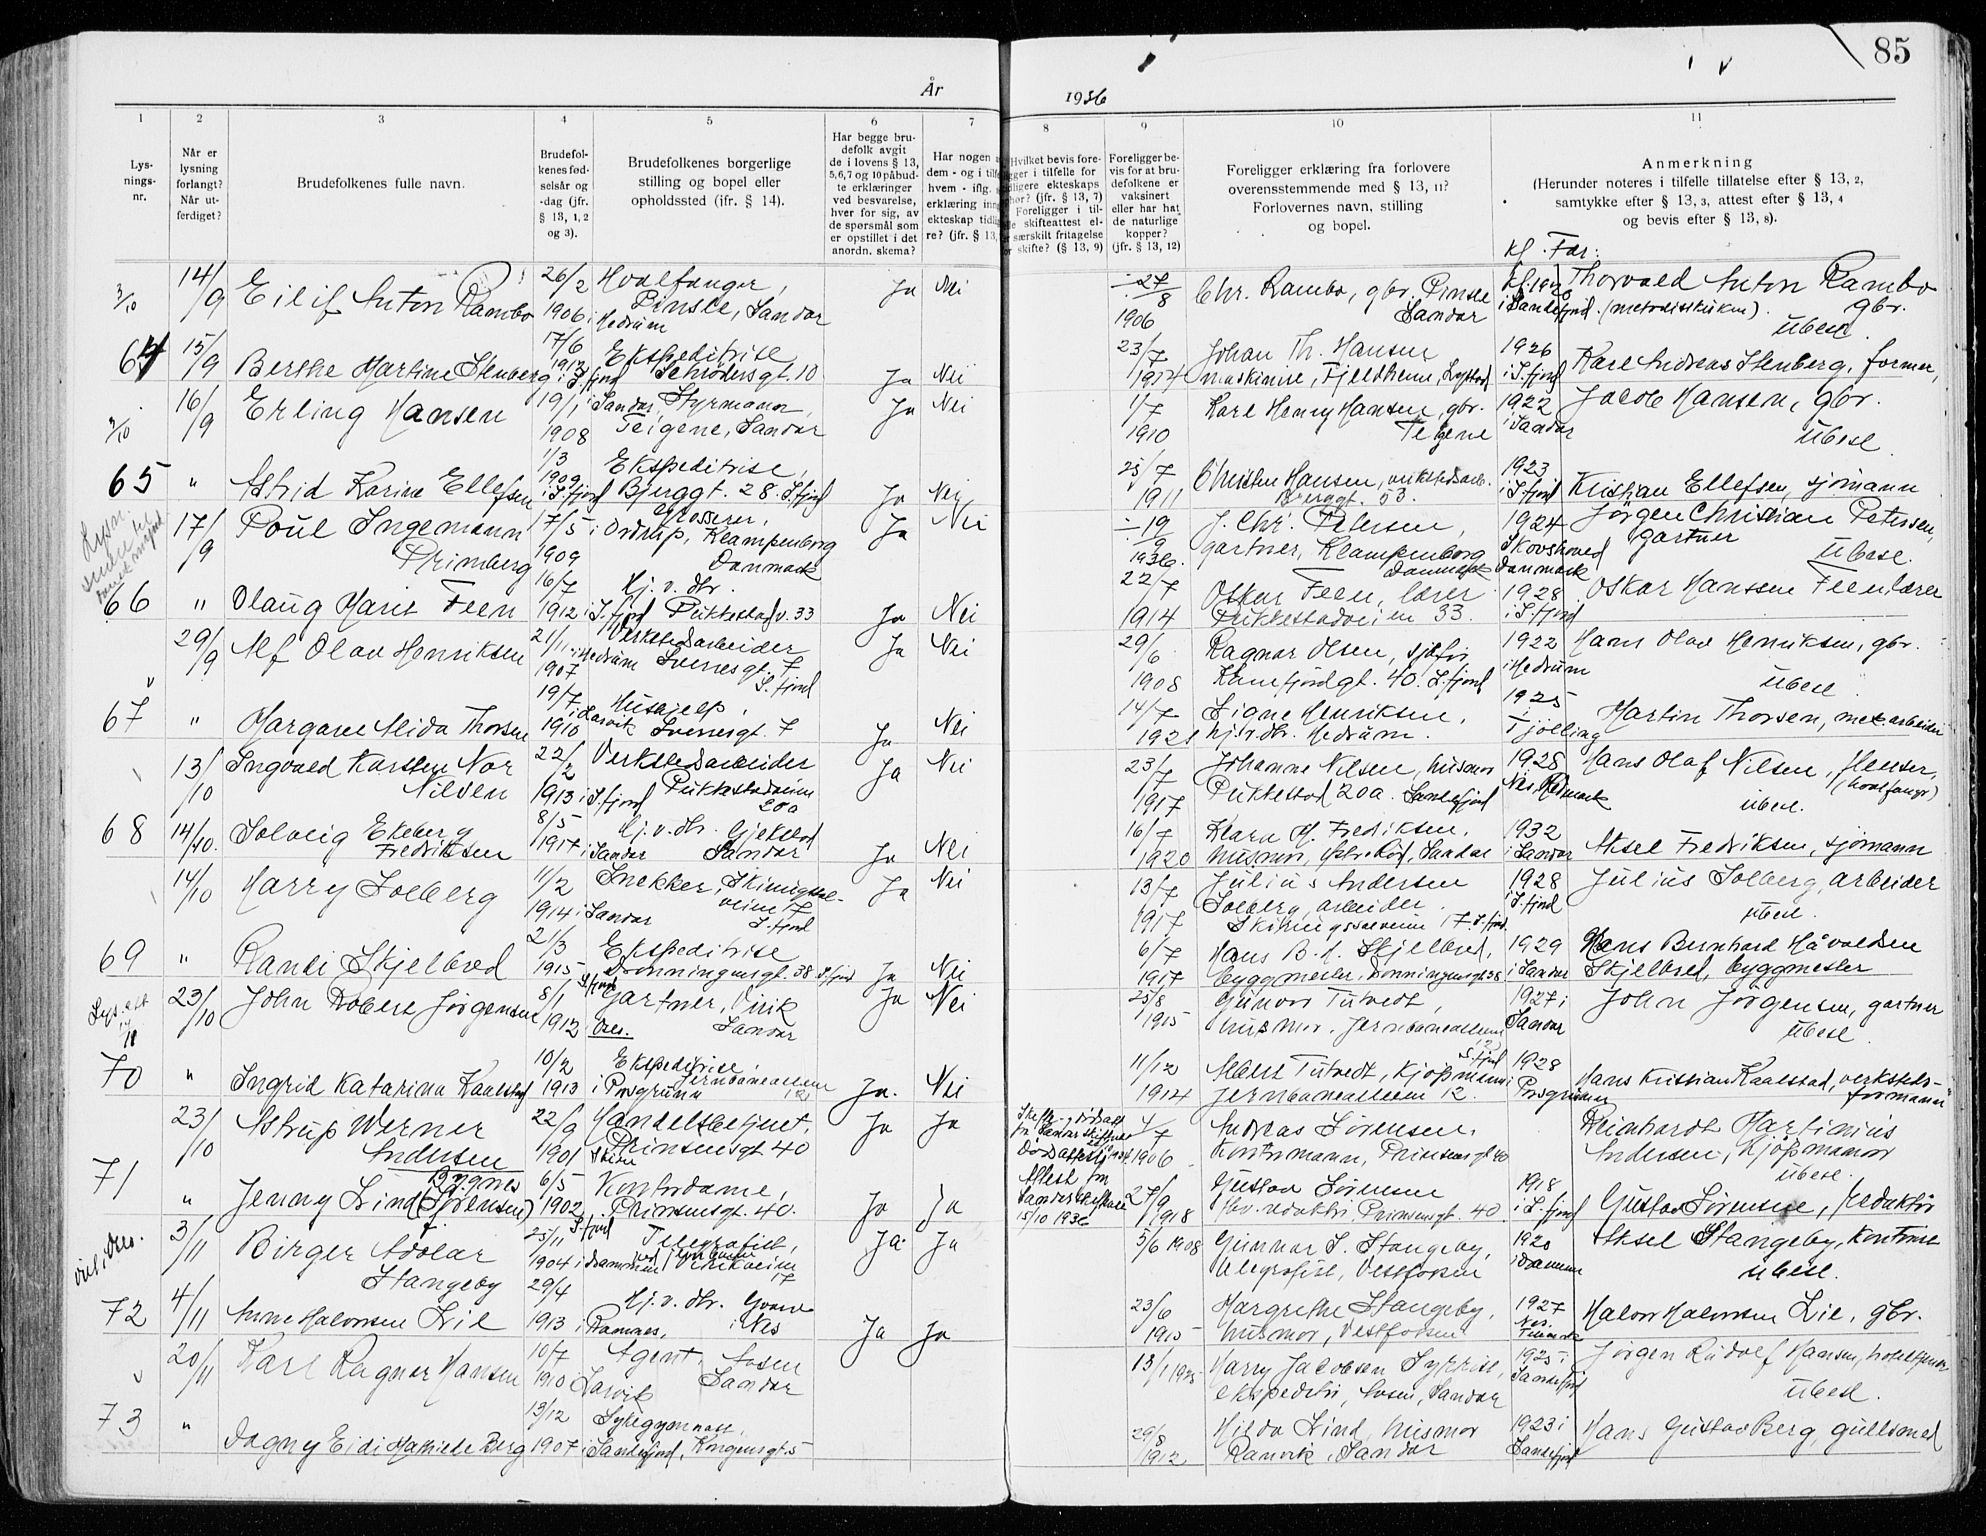 85
År 1936
1
2
3
4
5
6
7
8
9
10
11
Lys-
nings-
nr.
Når er
lysning
forlangt?
Når ut-
ferdiget?
Brudefolkenes fulle navn.
Brudefol-
kenes fød-
selsår og
-dag (jfr.
§ 13, 1, 2
og 3).
Brudefolkenes borgerlige
stilling og bopel eller
opholdssted (ifr. § 14).
Har begge bru-
defolk avgit
de i lovens § 13,
5,6,7 og 10 påbud-
te erklæringer
ved besvarelse,
hver for sig, av
de spørsmål som
er opstillet i det
anordn. skema?
Har nogen a
dem - og i tilf
hvem - iflg.
erklæring inn
ekteskap tidli
re? (jfr. § 13,
Hvilket bevis fore-
ligger i tilfelle for
tidligere ekteskaps
phør? (jfr. § 13, 7)
Foreligger i til-
le skifteattest el-
r særskilt fritagelse
or skifte? (§ 13, 9)
Foreligger be-
vis for at bru-
defolkene er
vaksinert
eller har hat
de naturlige
kopper?
(jfr. § 13, 12)
Foreligger erklæring fra forlovere
overensstemmende med § 13, 11?
Forlovernes navn, stilling
og bopel.
Anmerkning
(Herunder noteres i tilfelle tillatelse efter § 13, 2,
samtykke efter § 13, 3, attest efter § 13, 4
og bevis efter § 13, 8).
Kf. Far:
3/10 14/9 Eilif Anton Rambo 26/2 1906 i Hedrum Hvalfanger, Pinsle, Sandar Ja Nei 27/8 1906 Chr. Rambo, gbr. Pinsle Sandar Kf. 1920 i Sandefjord (metodistkirken). Thorvald Anton Rambo gbr. ubesl.
64 15/9 Berthe Martine Stenberg 17/6 1912 i S.fjord Ekspeditrise Schrødersgt. 10 Ja Nei 23/7 1914 Johan Th. Hansen maskinise, Fjeldheim, 1926 i S.fjord Karl Andreas Stenberg, former,
16/9 Erling Hansen 19/1 1908 i Sandar Styrmann, Teigene, Sandar Ja Nei 1/7 1910 Karl Henry Hansen, gbr. Teigene 1922 i Sandar Jakob Hansen, gbr. ubesl.
65 " Astrid Karine Ellefsen 1/3 1909 i S.fjord Ekspeditrise, Bjerggt. 28. S.fjord Ja Nei 25/7 1911 Christen Hansen, verkstedarb. Bjerggt. 53. 1923 i S.fjord Kristian Ellefsen, sjømann
17/9 Poul Ingemann 17/5 1909 Grosserer, i Ordrup, Klampenborg Danmark Ja Nei 19/9 1936. J. Chr. Petersen, gartner, Klampenborg Danmark 1924 Skovshoved Danmark Jørgen Christian Petersen, gartner ubesl.
66 " Olaug Marie Feen 16/7 1912 i S.fjord Hj. v. dtr. Pukkestadv. 33 Ja Nei 22/7 1914 Oskar Feen, lærer Pukkestadveien 33. 1928 i S.fjord Oskar Hanssen Feen, lærer
29/9 Alf Olav Henriksen 21/11 1907 i Hedrum Verkstedsarbeider Svernesgt. 7 S.fjord Ja Nei 29/6 1908 Ragnar Olsen, Kamfjordgt. 40. S.fjord 1922 i Hedrum Hans Olav Henriksen, gbr. ubesl.
67 " Margaret Alida Thorsen 19/7 1910 i Larvik Hushjelp, Svernesgt. 7 Ja Nei 14/7 1921 Signe Henriksen, hj.v.dtr. Hedrum. 1925 Tjølling Martin Thorsen, mek. arbeider
13/10 Ingvald Karsten Nor Nilsen 22/2 1913 i S.fjord Verkstedarbeider Pukkestadveien 20a Ja Nei 23/7 1917 Johanne Nilsen, husmor Pukkestad 20a. Sandefjord 1928 Nes, Hedmark Hans Olaf Nilsen, (hvalfanger) ubesl.
68 14/10. Solveig Ekeberg Fredriksen 8/5 1917 i Sandar Hj.v.dtr. Gjekstad Sandar Ja Nei 16/7 1920 Klara M. Fredriksen, husmor, Sandar 1932 i Sandar Aksel Fredriksen, sjømann
14/10 Harry Solberg 11/2 1914 i Sandar Snekker, Skiringssal-veien 17 S.fjord Ja Nei 13/7 1917 Julius Andersen Solberg, arbeider. Skiringssalveien 17. S.fjord 1928 i S.fjord Julius Solberg, arbeider ubesl.
69 " Randi Skjelbred 21/3 1915 S.fjord Ekspeditrise Dronningensgt. 38 S.fjord Ja Nei 6/7 1917 Hans B. H. Skjelbred, byggmester, Dronningensgt 38 1929 i Sandar Hans Bernhard Håvaldsen Skjelbred, byggmester
23/10 John Robert Jørgensen 8/1 1912 Gartner, Virik Sandar Ja Nei 25/8 1915 Gunvor Tutvedt, husmor. Jernbanealleen 12 S.fjord 1927 i Sandar John Jørgensen, gartner ubesl.
70 " Ingrid Katarina Kaalstad 10/2 1913 i Porsgrunn Ekspeditrise, Jernbanealleen 12 Ja. Nei 11/12 1914 Albert Tutvedt, kjøpmann Jernbanealleen 12. 1928 i Porsgrunn Hans Kristian Kaalstad, verksteds-formann
23/10 Astrup Werner Andersen 22/9 1901 Skien Handelsbetjent, Prinsensgt 40 Ja Ja 4/7 1906 Andreas Sørensen, kontormann, Prinsensgt 40 Reinhardt Martinius Andersen, kjøpmann ubesl.
71 " Jenny Lind Bygnes (f. Sørensen) 6/5 1902 S.fjord Kontordame, Prinsensgt. 40. Ja Ja Attest fra Sandar skifterett 15/10 1936 27/9 1918 Gustav Sørensen fhv. redaktør, Prinsensgt. 40. 1918 i S.fjord Gustav Sørensen, redaktør
3/11 Birger Adolar Stangeby 25/11 1904 i Drammen Telegrafist, Virikveien 17 Ja. Ja 5/6 1908 Gunnar S. Stangeby, telegrafist, Vestfossen 1920 i Drammen Aksel Stangeby, kontorist ubesl.
72 4/11 Anne Halvorsen Lie 29/4 1913 i Ramnes, Hj.v.dtr. i Nes Ja Ja 23/6 1915 Margrethe Stangeby, husmor, Vestfossen 1927 Nes. Telemark Halvor Halvorsen Lie, gbr.
20/11 Karl Ragnar Hansen 10/7 1910 Larvik Agent, Aasen Sandar 13/1 1925 Harry Jacobsen ekspeditør, Aasen, Sandar 1925 i Sandefjord Jørgen Rudolf Hansen, ubesl.
73 " Dagny Eidi Mathilde Berg 13/12 1907 i Sandefjord, Sykegymnast, Kongensgt. 5 29/8 1912 Hilda Lind, husmor Ranvik, Sandar 1923 i Sandefjord Hans Gustav Berg, gullsmed